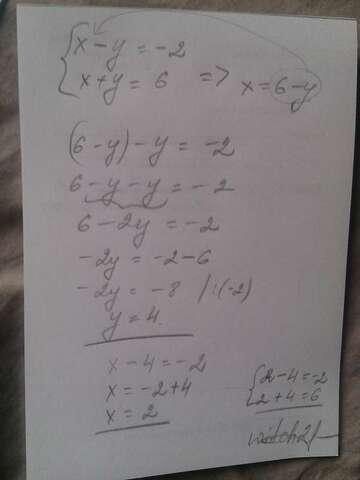 x - y = -2
x + y = 6 => x = 6 - y
(6 - y) - y = -2
6 - y - y = -2
6 - 2y = -2
-2y = -2 - 6
-2y = -8 /:(-2)
y = 4
x - 4 = -2
x = -2 + 4
x = 2
2 - 4 = -2
2 + 4 = 6